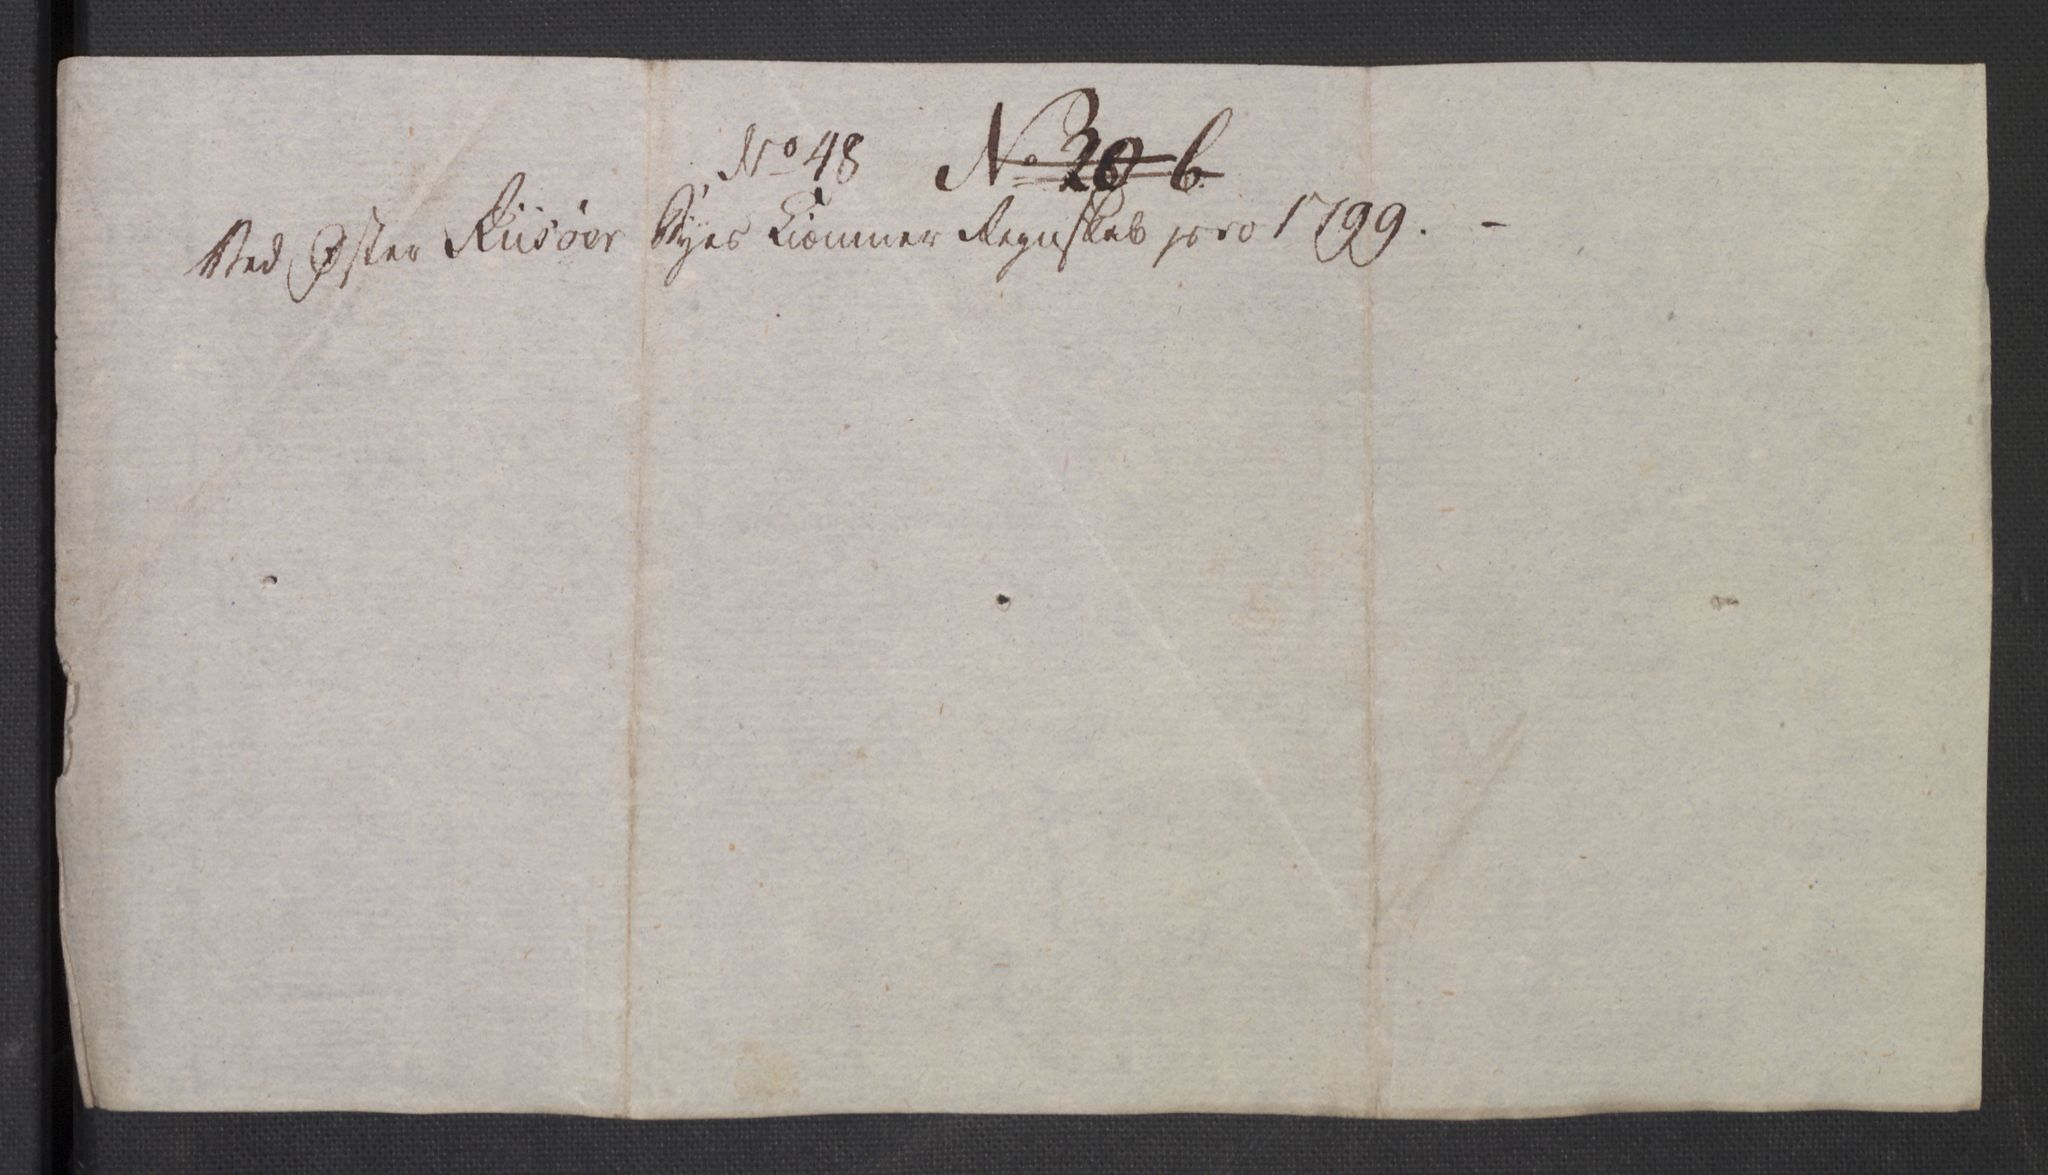 No 48 No 20 b
Ved Øster Riisöer Byes Kiæmner Regnskab pro 1799. -